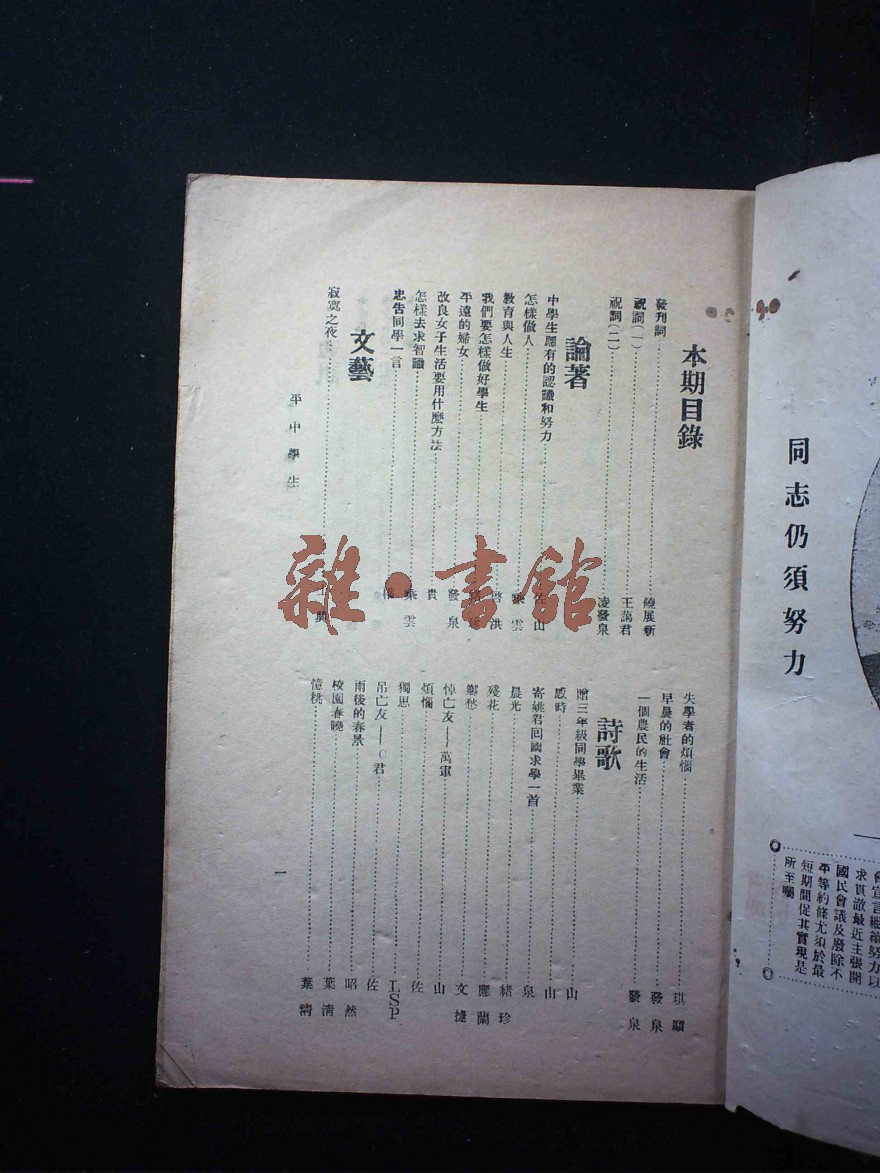 同志仍須努力
會宣言繼續努力以
求貫澈最近主張開
國民會議及廢除不
平等約條尤須於最
短期間促其實現是
所至囑
本期目錄
發刊詞 饒展新
祝詞(一) 王藹君
祝詞(二) 凌發泉
論著
中學生應有的認識和努力 佐山
怎樣做人 乘雲
教育與人生 啓洪
我們要怎樣做好學生
平遠的婦女 發泉
改良女子生活要用什麼方法 貴
怎樣去求智識 乘雲
忠告同學一言
文藝
寂寞之夜
失學者的煩惱 琪碩
早晨的社會 發泉
一個農民的生活 發泉
詩歌
贈三年級同學畢業 山
感時 山
寄姚君回國求學一首 泉
晨光 緒珍
殘花 應蘭
鄉愁 文捷
悼亡友——萬軍 山
煩惱 佐
獨思 LSP
吊亡友——C君 佐
雨後的春景 昭然
校園春曉 葉淸
憶桃 葉精
平中學生
一
雜·書館